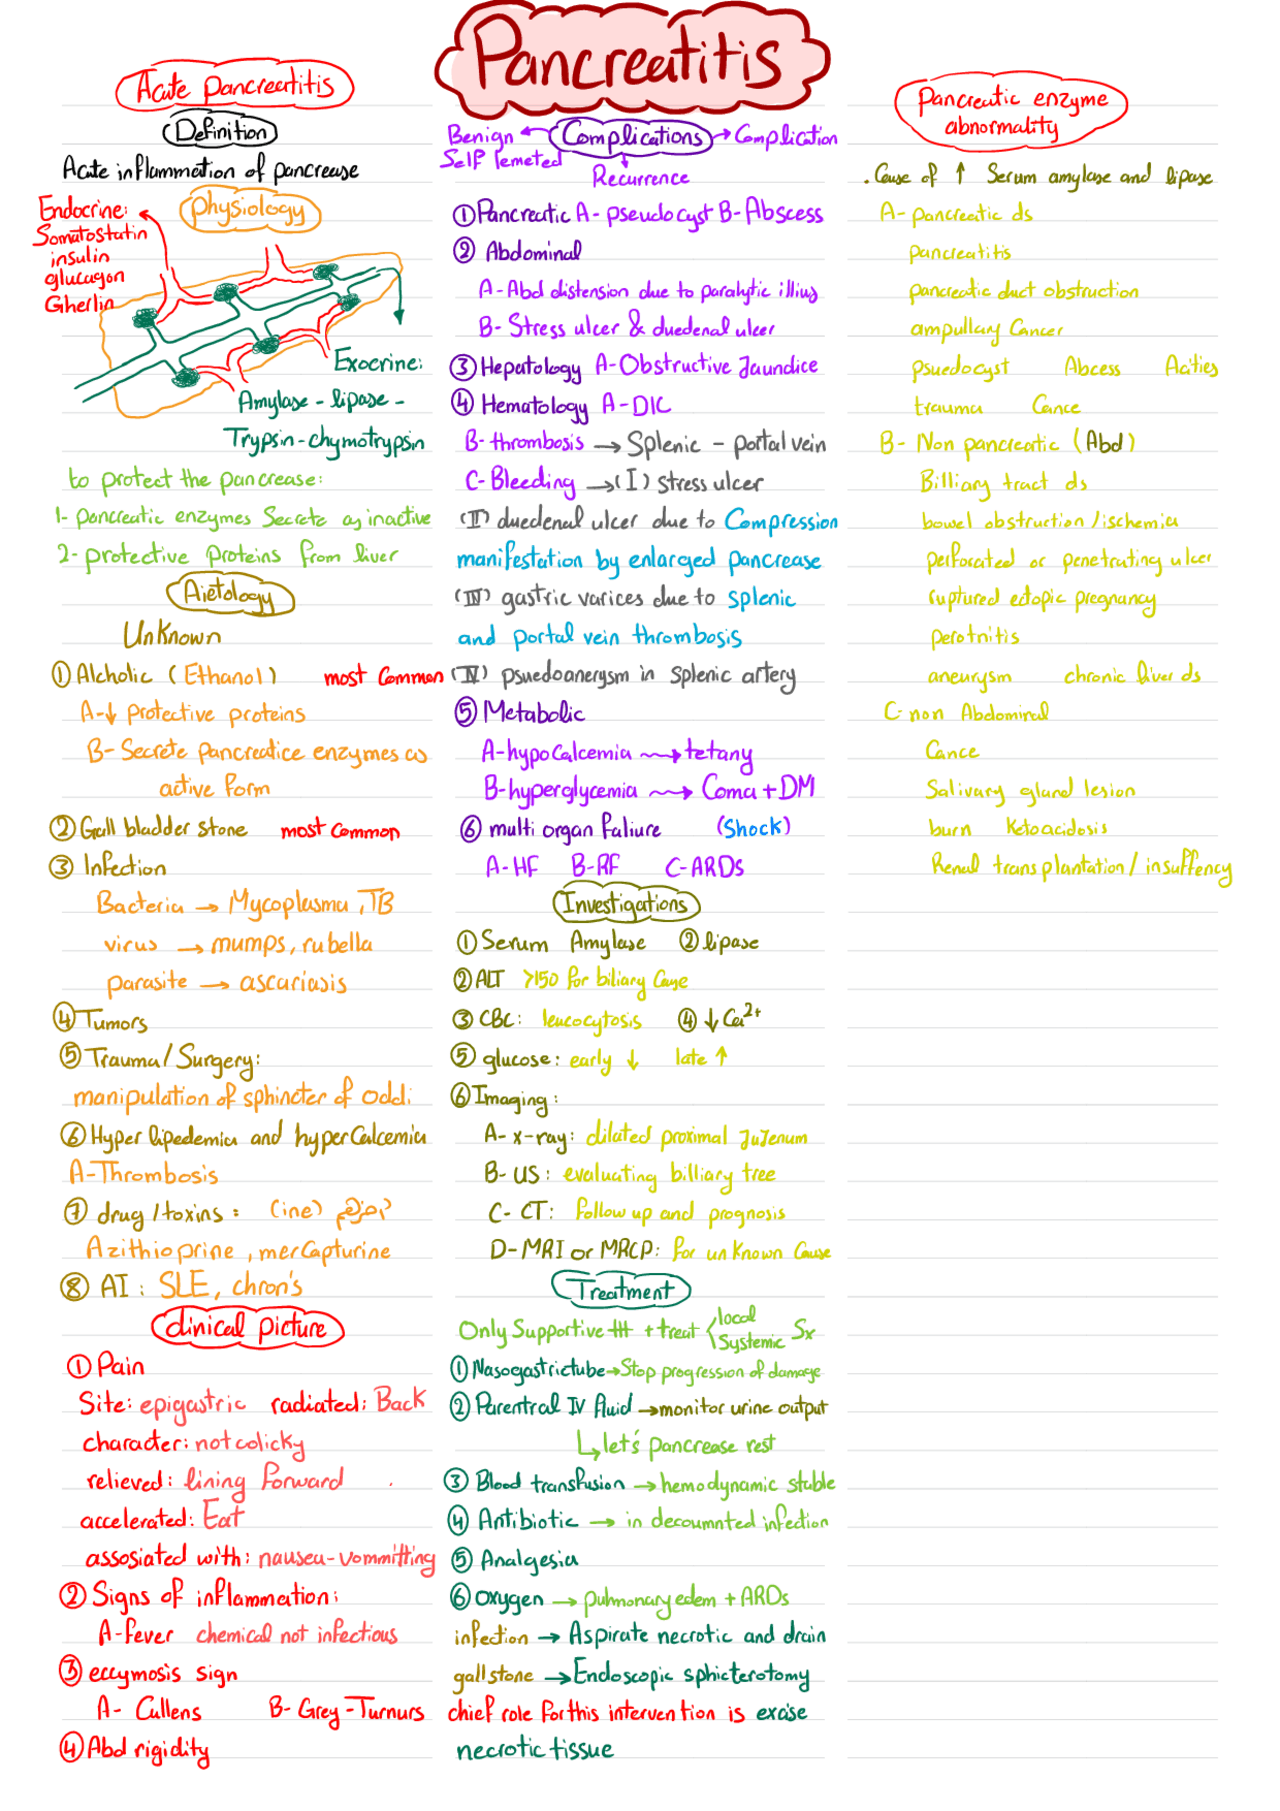 Pancreatitis
Acute pancreatitis
Definition
Acute inflammation of pancrease
physiology
Endocrine:
Somatostatin
insulin
glucagon
Gherlin
Exocrine:
Amylase - lipase -
Trypsin - chymotrypsin
to protect the pancrease:
1- pancreatic enzymes Secrete as inactive
2- protective Proteins from liver
Aietology
Unknown
① Alcholic (Ethanol) most Common
A-↓ protective proteins
B- Secrete pancreatice enzymes as
active form
② Gall bladder stone most Common
③ Infection
Bacteria → Mycoplasma, TB
virus → mumps, rubella
parasite → ascariasis
④ Tumors
⑤ Trauma/Surgery:
manipulation of sphincter of oddi
⑥ Hyper lipedemia and hyperCalcemia
A-Thrombosis
⑦ drug/toxins: (ine)
Azithioprine, merCapturine
⑧ AI: SLE, chron's
clinical picture
① Pain
Site: epigastric radiated: Back
character: not colicky
relieved: lining forward
accelerated: Eat
assosiated with: nausea-vommitting
② Signs of inflammation:
A-fever chemical not infectious
③ eccymosis sign
A- Cullens B- Grey-Turnurs
④ Abd rigidity
Benign ← Complications → Complication
Self lemeted
Recurrence
① Pancreatic A- pseudocyst B-Abscess
② Abdominal
A-Abd distension due to paralytic illius
B- Stress ulcer & duedenal ulcer
③ Hepatology A-Obstructive Jaundice
④ Hematology A-DIC
B-thrombosis → Splenic - portal vein
C-Bleeding → (I) stress ulcer
(II) duedenal ulcer due to Compression
manifestation by enlarged pancrease
(III) gastric varices due to splenic
and portal vein thrombosis
(IV) psuedoanerysm in splenic artery
⑤ Metabolic
A-hypoCalcemia → tetany
B-hyperglycemia → Coma + DM
⑥ multi organ faliure (Shock)
A-HF B-RF C-ARDs
Investigations
① Serum Amylase ② lipase
② ALT >150 for biliary Cause
③ CBC: leucocytosis ④ ↓Ca2+
⑤ glucose: early ↓ late ↑
⑥ Imaging:
A- x-ray: dilated proximal JuJenum
B- US: evaluating billiary tree
C- CT: follow up and prognosis
D-MRI or MRCP: for unknown Cause
Treatment
Only Supportive ttt + treat < local Systemic Sx
① Nasogastrictube → Stop progression of damage
② Parentral IV fluid → monitor urine output
↳ let's pancrease rest
③ Blood transfusion → hemodynamic stable
④ Antibiotic → in decoumnted infection
⑤ Analgesia
⑥ oxygen → pulmonary edem + ARDs
infection → Aspirate necrotic and drain
gall stone → Endoscopic sphicterotomy
chief role for this intervention is exise
necrotic tissue
Pancreatic enzyme
abnormality
. Cause of ↑ Serum amylase and lipase
A- pancreatic ds
pancreatitis
pancreatic duct obstruction
ampullary Cancer
psuedocyst Abcess Acities
trauma Cance
B- Non pancreatic (Abd)
Billiary tract ds
bowel obstruction/ischemia
perforated or penetrating ulcer
ruptured ectopic pregnancy
perotnitis
aneurysm chronic liver ds
C-non Abdominal
Cance
Salivary gland lesion
burn Ketoacidosis
Renal transplantation/insuffency